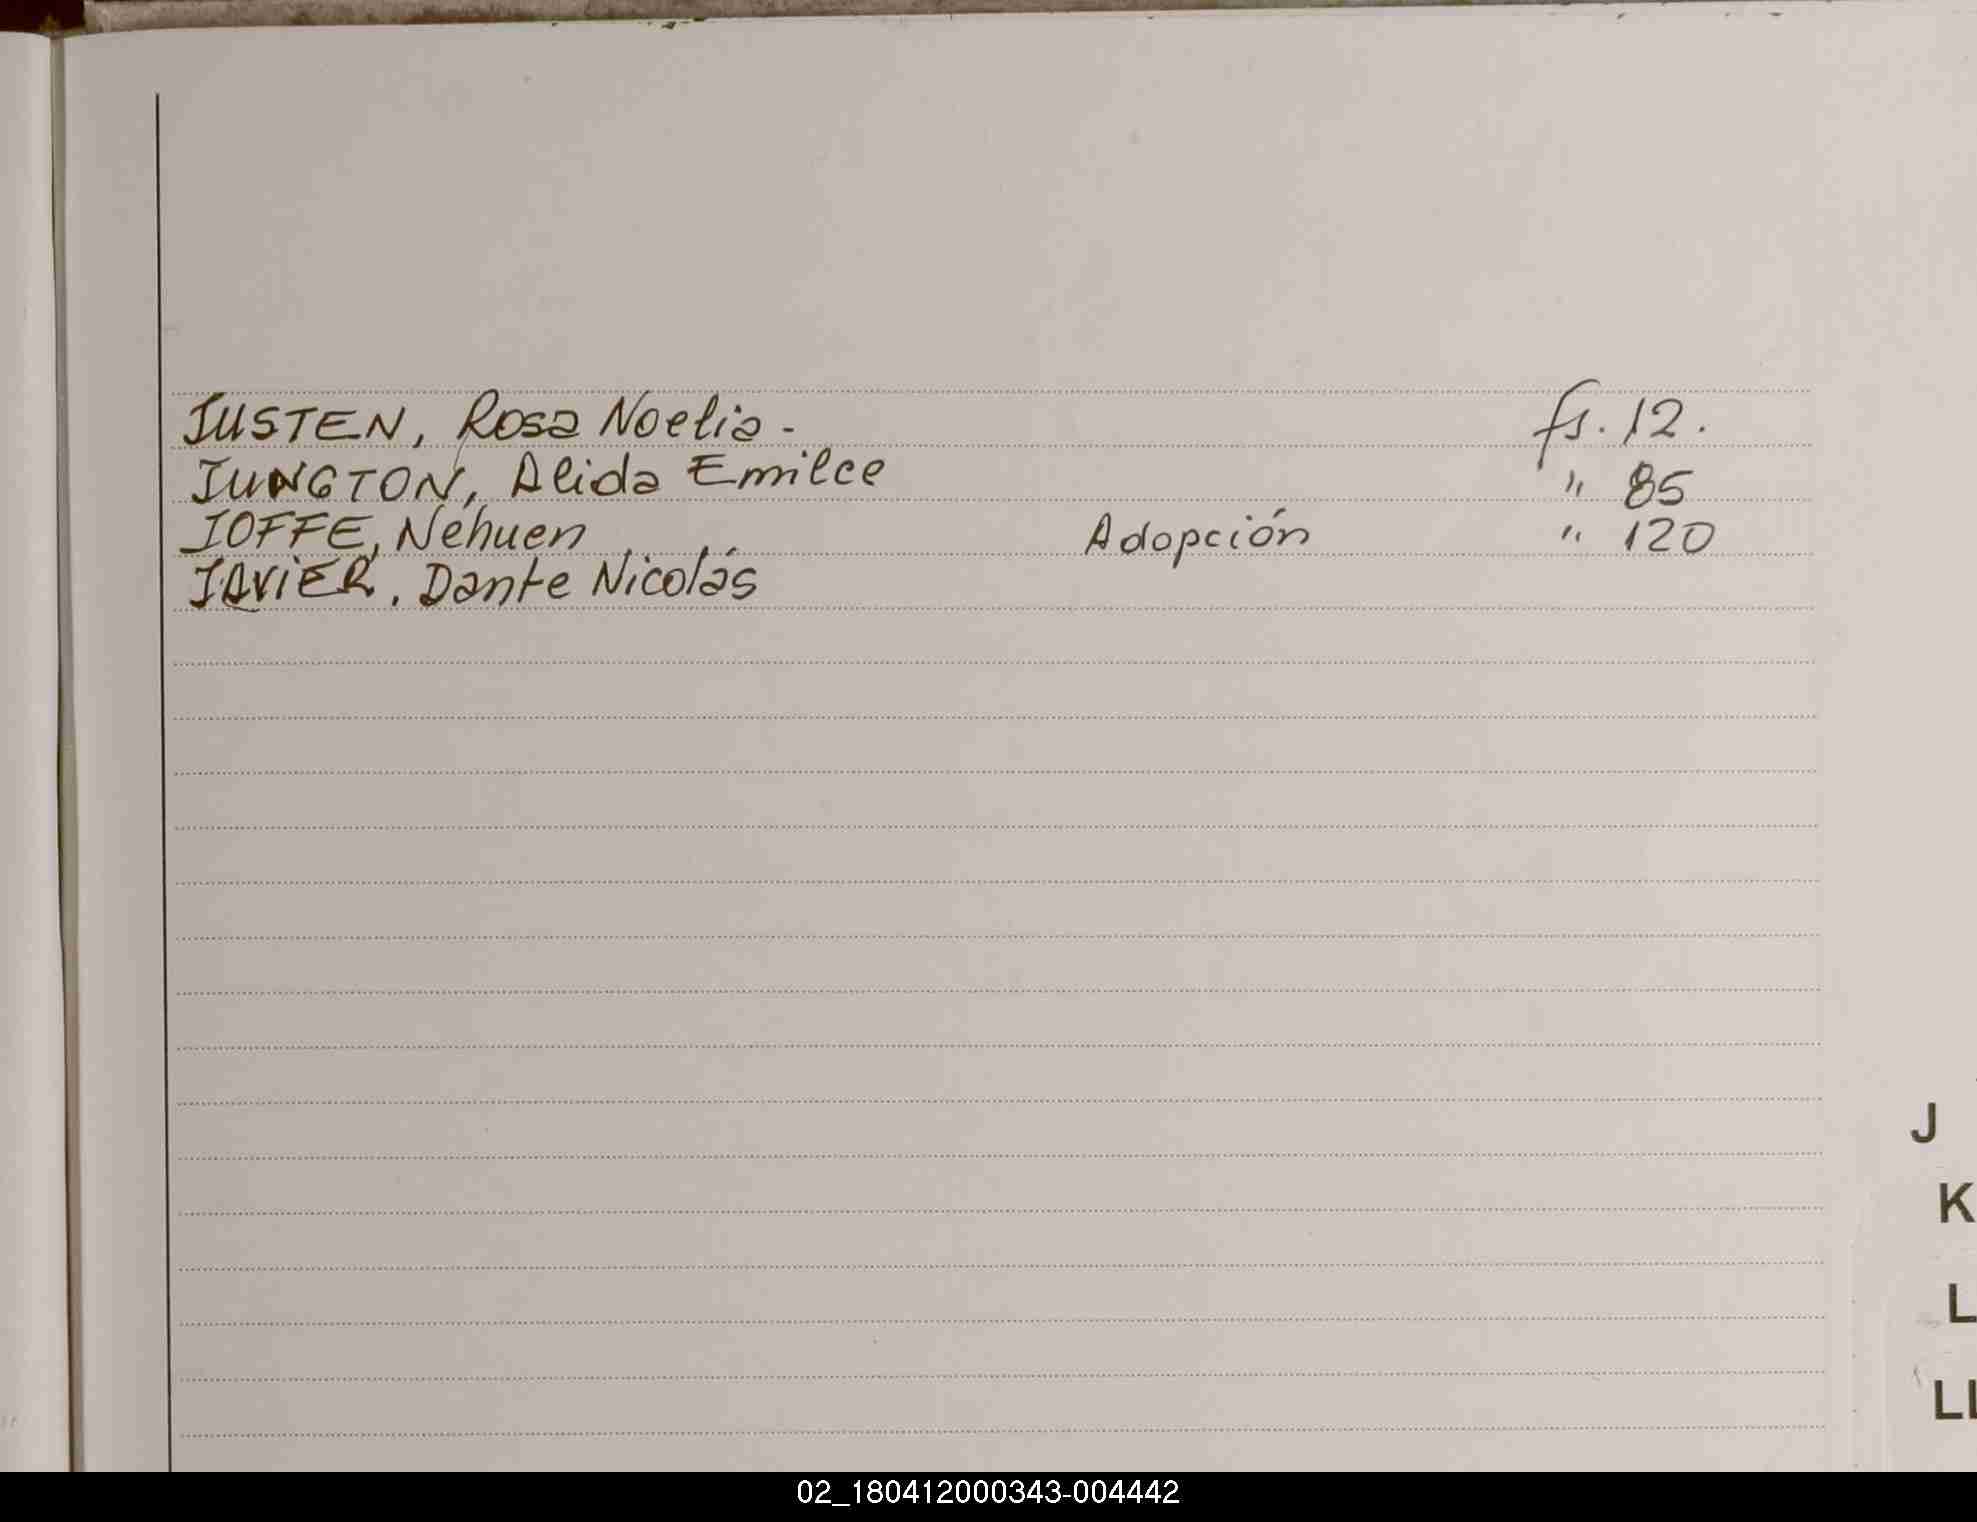 JUSTEN, Rosa Noelia - fs. 12.
JUNGTON, Alida Emilce " 85
JOFFE, Nehuen Adopción " 120
JAVIER, Dante Nicolás
J
K
L
LL
02_180412000343-004442